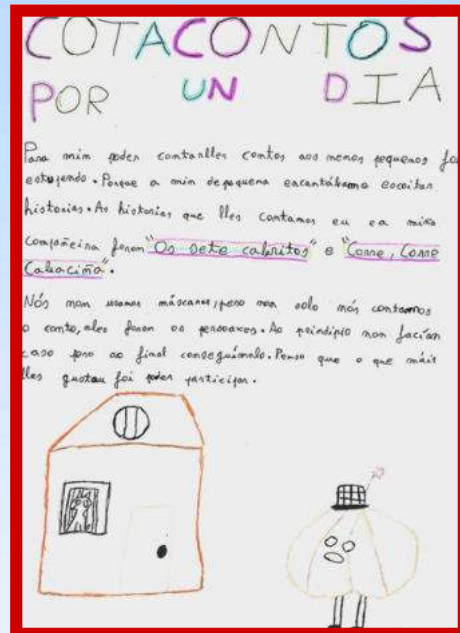 COTACONTOS
POR UN DIA
Para min poder contarlles contos aos nenos pequenos foi
estupendo. Porque a min de pequena encantábame escoitar
historias. As historias que lles contamos eu e a miña
compañeira foron "Os sete cabritos" e "Corre, Corre
Cabaciña".
Nós non usamos máscaras, pero non solo nós contamos
o conto, eles foron os personaxes. Ao principio non facían
caso pero ao final conseguímolo. Penso que o que máis
lles gustou foi poder participar.